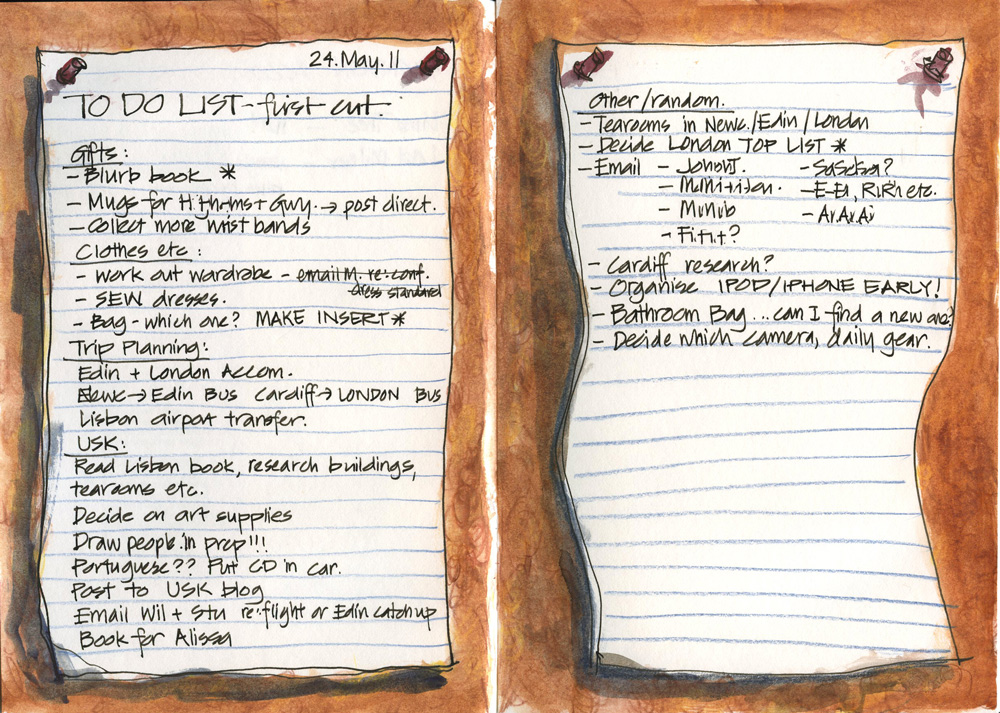 24.May.11
TO DO LIST - first cut:
Gifts:
- Blurb book *
- Mugs for + Guy. → post direct.
- collect more wrist bands
Clothes etc:
- work out wardrobe - email M. re: conf.
dress standard
- SEW dresses.
- Bag - which one? MAKE INSERT *
Trip Planning:
Edin + London Accom.
Newc → Edin Bus Cardiff → LONDON BUS
Lisbon airport transfer.
USK:
Read Lisbon book, research buildings,
tearooms etc.
Decide on art supplies
Draw people in prep!!!
Portuguese?? Put CD in car.
Post to USK blog
Email Wil + Stu re: flight or Edin catch up
Book for Alissa
Other/random.
- Tearooms in Newc./Edin/London
- Decide London TOP LIST *
- Email
- Cardiff research?
- Organise IPOD/IPHONE EARLY!
- Bathroom Bag...can I find a new one?
- Decide which camera, daily gear.